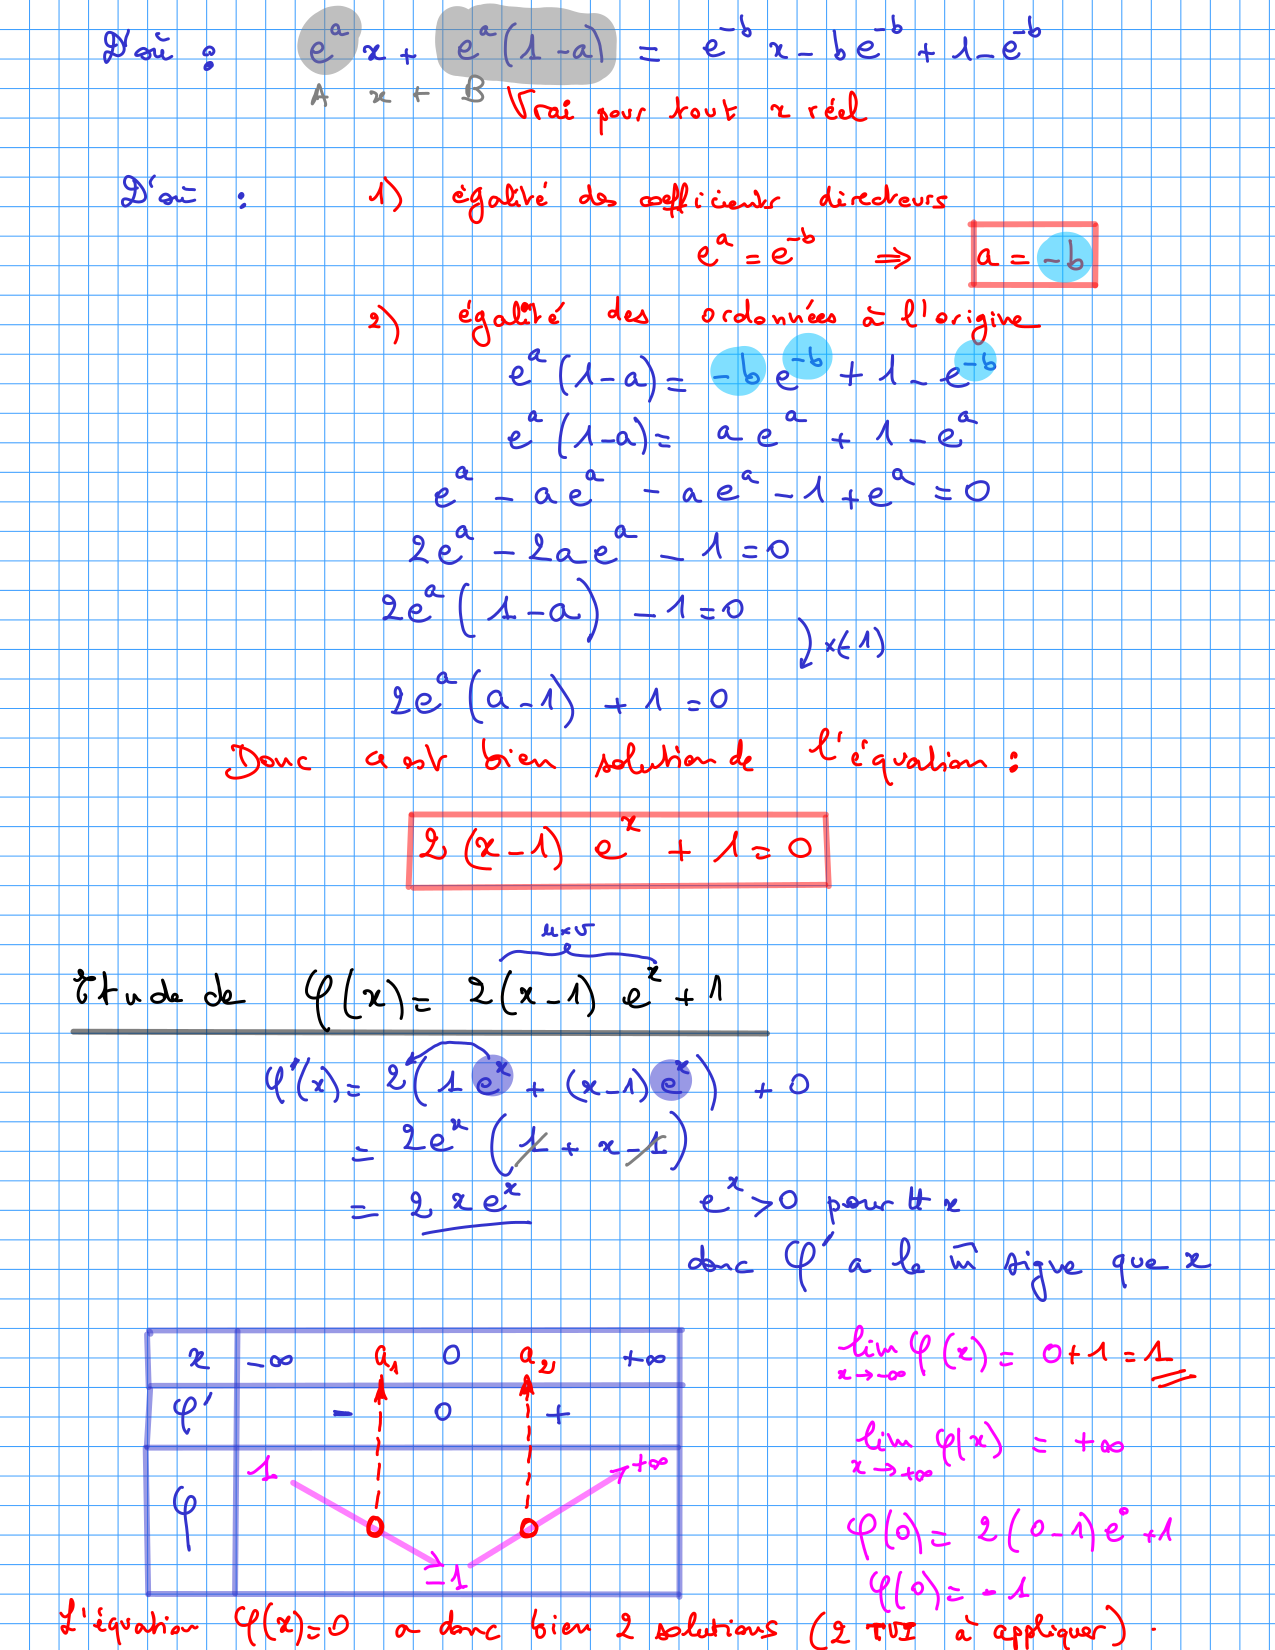 D'où : eᵃ x + eᵃ(1-a) = e⁻ᵇ x - b e⁻ᵇ + 1 - e⁻ᵇ
A x + B Vrai pour tout x réel
D'où : 1) égalité des coefficients directeurs
eᵃ = e⁻ᵇ ⇒ a = -b
2) égalité des ordonnées à l'origine
eᵃ (1-a) = -b e⁻ᵇ + 1 - e⁻ᵇ
eᵃ (1-a) = a eᵃ + 1 - eᵃ
eᵃ - a eᵃ - a eᵃ - 1 + eᵃ = 0
2eᵃ - 2a eᵃ - 1 = 0
2eᵃ (1-a) - 1 = 0
×(-1)
2eᵃ (a-1) + 1 = 0
Donc a est bien solution de l'équation :
2 (x-1) eˣ + 1 = 0
u×v
Étude de φ(x) = 2(x-1) eˣ + 1
φ'(x) = 2(1 eˣ + (x-1) eˣ) + 0
= 2eˣ (1 + x - 1)
= 2 x eˣ eˣ > 0 pour tt x
donc φ' a le m̄ signe que x
x -∞ a₁ 0 a₂ +∞
φ' - 0 +
φ 1 -1 +∞
lim φ(x) = 0 + 1 = 1
x → -∞
lim φ(x) = +∞
x → +∞
φ(0) = 2(0-1)e⁰ + 1
φ(0) = -1
L'équation φ(x) = 0 a donc bien 2 solutions (2 TVI à appliquer).